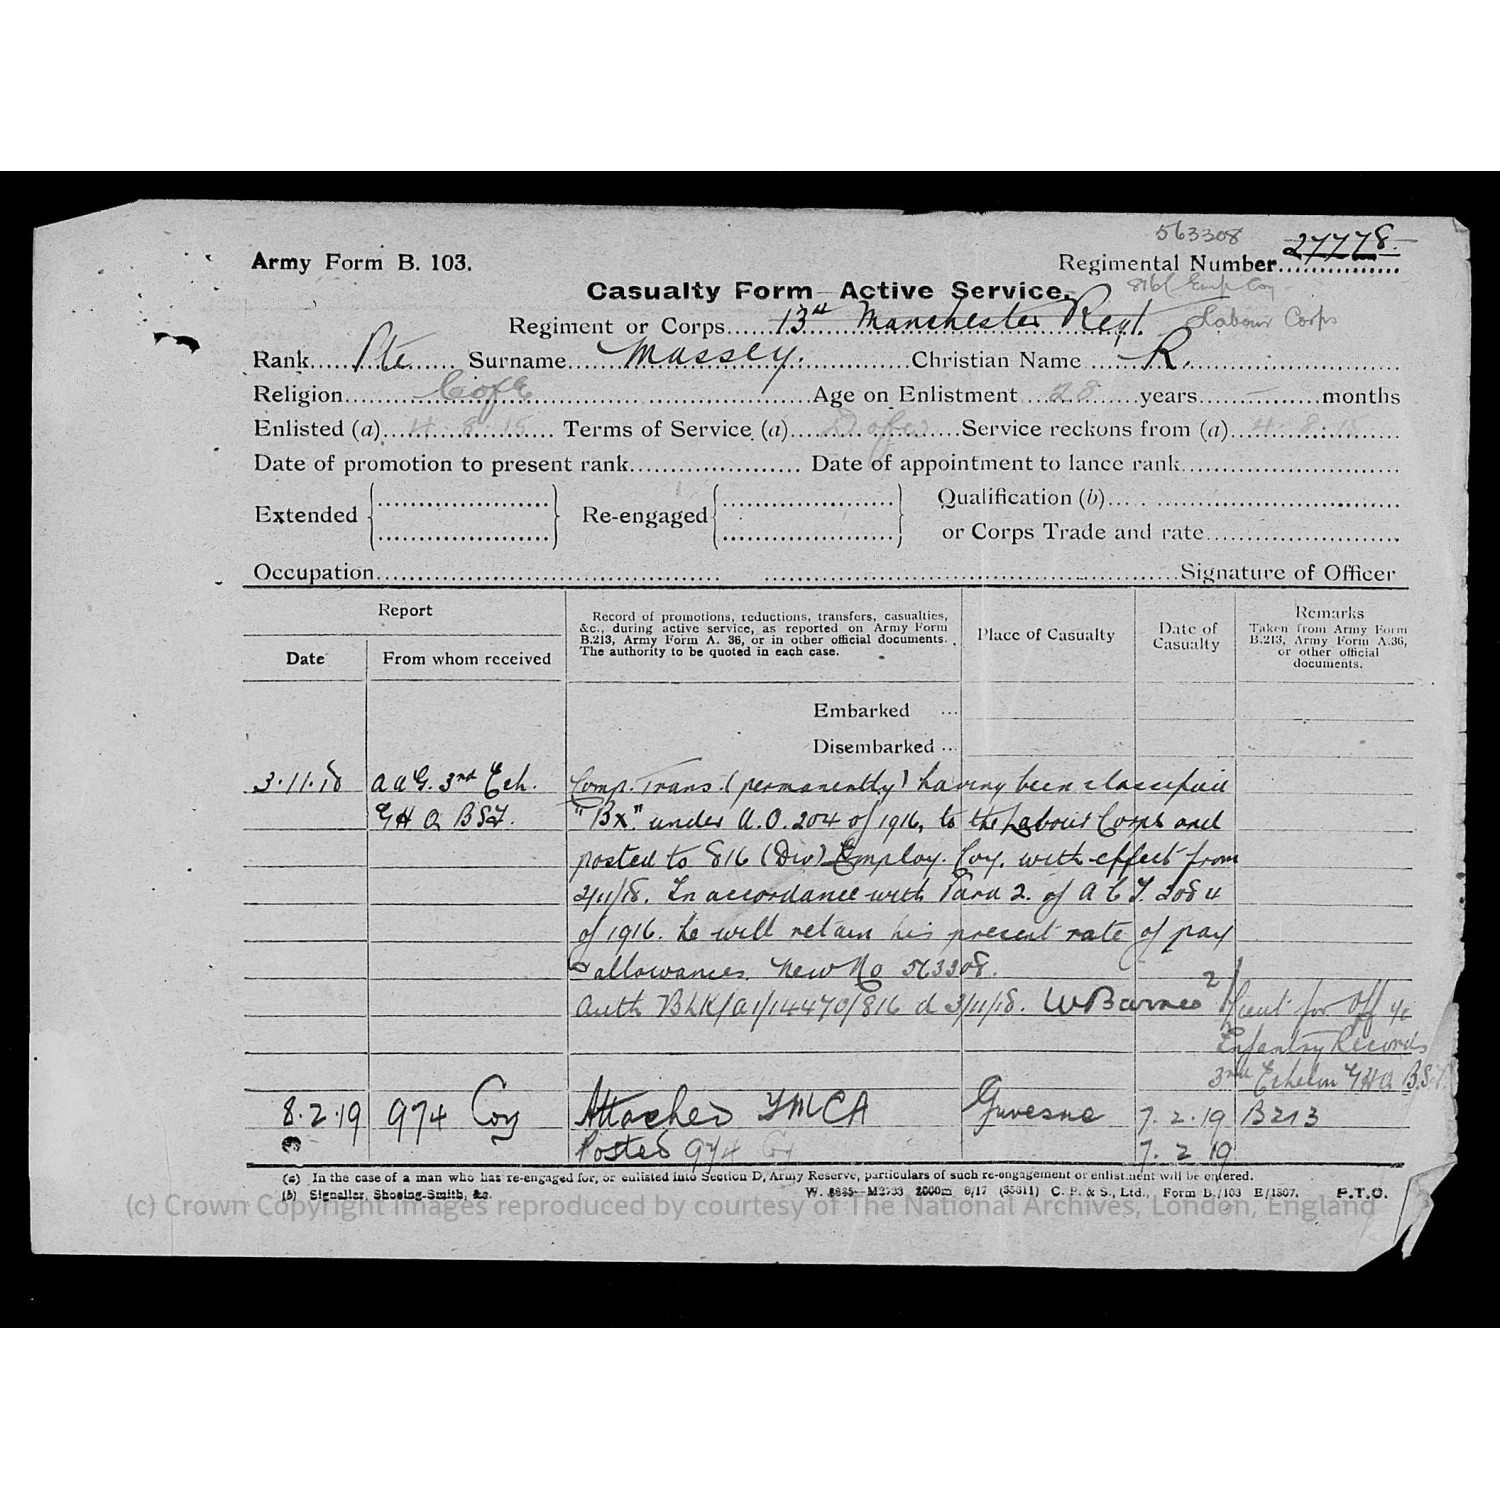 563308
Army Form B. 103.
Regimental Number 27778.
Casualty Form—Active Service.
816 Emp Coy
Regiment or Corps 13th Manchester Regt. Labour Corps
Rank Pte Surname Massey. Christian Name R.
Religion C of E Age on Enlistment 28 years — months
Enlisted (a) 4.8.15 Terms of Service (a) D of W Service reckons from (a) 4.8.15
Date of promotion to present rank Date of appointment to lance rank
Extended Re-engaged Qualification (b)
or Corps Trade and rate
Occupation Signature of Officer
Report
Date From whom received
Record of promotions, reductions, transfers, casualties,
&c., during active service, as reported on Army Form
B.213, Army Form A. 36, or in other official documents.
The authority to be quoted in each case.
Place of Casualty
Date of
Casualty
Remarks
Taken from Army Form
B.213, Army Form A.36,
or other official
documents.
Embarked ...
Disembarked ...
3.11.18 A A G. 3rd Ech. Comp. Trans. (permanently) having been classified
G H Q BSF. "Bx." under A.O. 204 of 1916, to the Labour Corps and
posted to 816 (Div) Employ. Coy. with effect from
2/11/18. In accordance with Para 2. of A C I. 2084
of 1916. he will retain his present rate of pay
& allowances. New No 563308.
Auth BLK/A1/14470/816 d 3/11/18. W Barnes 2/Lieut for Off i/c
Infantry Records
3rd Echelon GHQ B.S.F.
8.2.19 974 Coy Attached YMCA Guvesne 7.2.19 B213
Posted 974 Coy 7.2 19
(a) In the case of a man who has re-engaged for, or enlisted into Section D, Army Reserve, particulars of such re-engagement or enlistment will be entered.
(b) Signaller, Shoeing-Smith, &c. W. 8885—M2733 2000m 9/17 (35611) C. P. & S., Ltd., Form B./103 E/1507. P.T.O.
(c) Crown Copyright Images reproduced by courtesy of The National Archives, London, England